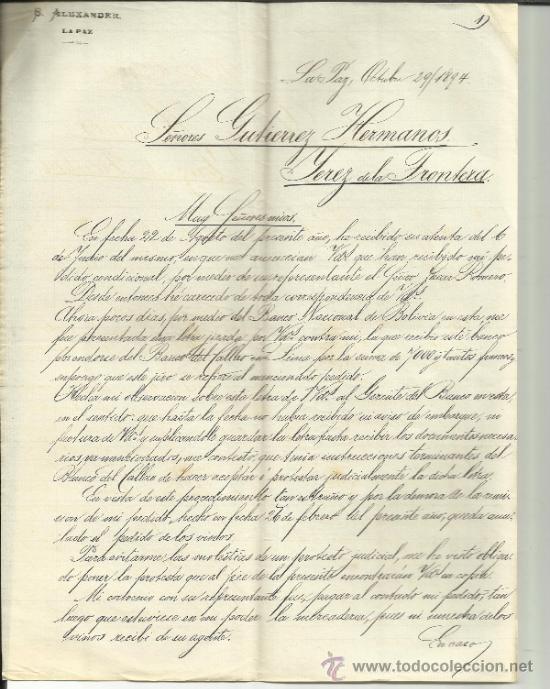 S. ALEXANDER.
LA PAZ
1)
La Paz, Octubre 29/1894.
Señores Gutierrez Hermanos
Jerez de la Frontera.
Muy Señores mios.
En fecha 22 de Agosto del presente año, he recibido su atenta del 6
de Junio del mismo, en que me anuncian Vds que han recibido mi pe-
dido condicional, por medio de su representante el Señor Juan Romero.
Desde entonces he carecido de toda correspondencia de Vds.
Ahora pocos dias, por medio del Banco Nacional de Bolivia en esta, me
fue presentada una letra girada por Vds contra mi, la que recibió este banco
por ordenes del Banco del Callao en Lima por la suma de 7000 y tantos francos,
supongo que este giro se refiere al mencionado pedido.
Hecha mi observacion sobre esta letra de Vds al Gerente del Banco en esta
en el sentido: que hasta la fecha no habia recibido ni aviso de embarque, ni
factura de Vds y suplicandole guardar la letra hasta recibir los documentos necesa-
rios, me contestó, que tenia instrucciones terminantes del
Banco del Callao de hacer aceptar ó protestar judicialmente la dicha letra.
En vista de este procedimiento tan estraño y por la demora de la remi-
sion de mi pedido, hecho en fecha 26 de febrero del presente año, queda anu-
lado el pedido de los vinos.
Para evitarme las molestias de un protesto judicial, me he visto obliga-
do poner la protesta que al pie de la presente encontrarán Vds en copia.
Mi convenio con su representante fue, pagar al contado mi pedido, tan
luego que estuviese en mi poder la mercaderia, pues ni muestra de los
vinos recibí de su agente.
En caso
www.todocoleccion.net